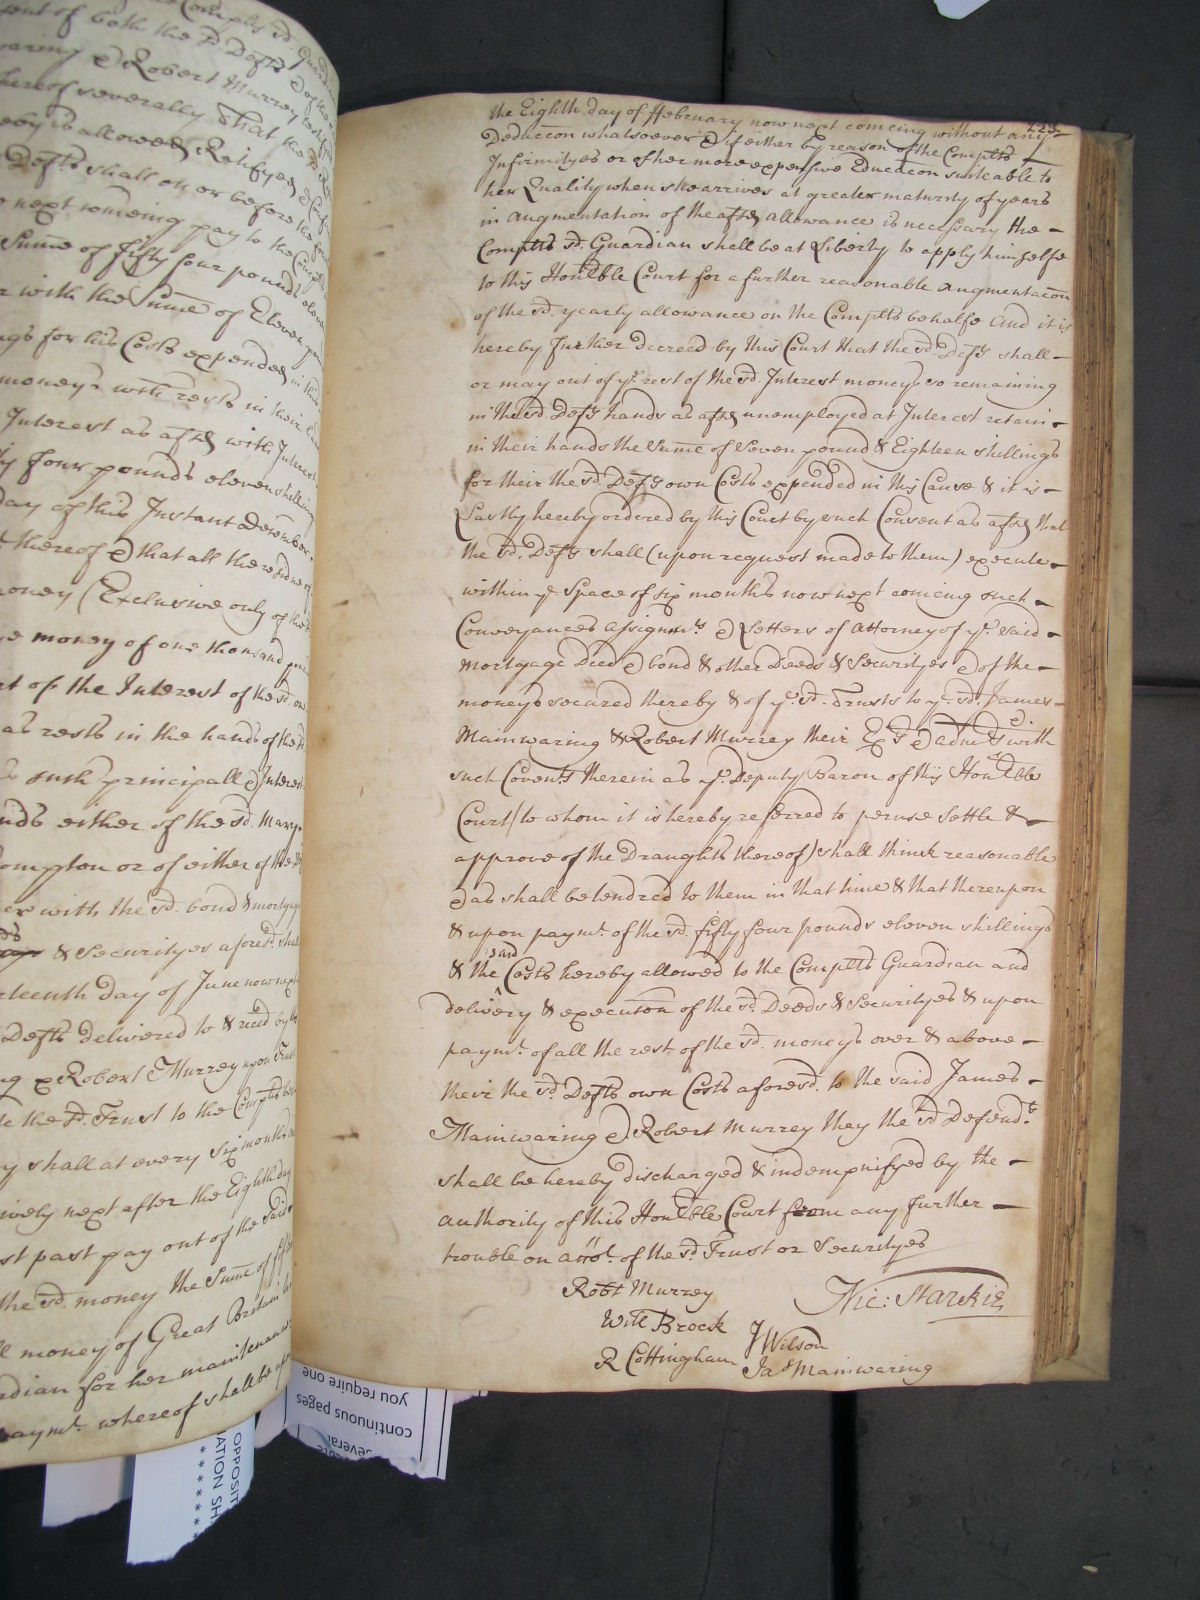 ent of both the sd. Defts
waring & Robert Murrey
hereof severally That the
eby is allowed Ratifyed &
Defts shall on or before the
next comeing pay to the Complts
Sum̄e of fifty four pounds eleven
r with the Sum̄e of Eleven
ngs for his Costs expended in this
money's with rests in their
Interest as afsd with Interest
ty four pounds eleven shillings
day of this Instant December
thereof & that all the residue of
oney (Exclusive only of the
e money of one thousand
rt of the Interest of the sd. one
as rests in the hands of the
such principall & Interest
nds either of the sd. Mary
ompton or of either of the
er with the sd. bond & mortgage
& Securityes aforesd. shall
teenth day of June now next
Defts delivered to & reced by
ng & Robert Murrey upon Trust
the sd. Trust to the Complts
y shall at every six months
ively next after the Eighth day
st past pay out of the said
the sd. money the Sum̄e of
money of Great Britain
rdian for her maintenance
paymt. whereof shall be
223
the Eighth day of ffebruary now next comeing without any
Deduccōn whatsoever & if either by reason of the Complts
Infirmityes or other more expensive Educacōn suiteable to
her Quality when she arrives at greater maturity of years
in augmentation of the afsd allowance is necessary the
Complts sd. Guardian shall be at Liberty to apply himselfe
to this Honoble Court for a further reasonable augmentacōn
of the sd. yearly allowance on the Complts behalfe And it is
hereby further decreed by this Court that the sd. Defts shall
or may out of ye. rest of the sd. Interest money's so remaining
in the sd. Defts hands as afsd unemployed at Interest retain
in their hands the Sum̄e of Seven pound & Eighteen shillings
for their the sd. Defts own Costs expended in this Cause & it is
Lastly hereby ordered by this Court by such Consent as afsd that
the sd. Defts shall (upon request made to them) execute
within ye Space of six months now next comeing such
Conveyances Assignmts & Letters of Attorney of ye. said
Mortgage Deed & bond & other Deeds & Securityes & of the
moneys secured thereby & of ye. sd. Trusts to ye. sd. James
Mainwaring & Robert Murrey their Exrs & Admrs with
such Covents therein as ye. Deputy Baron of this Honoble
Court (to whom it is hereby referred to peruse settle &
approve of the Draughts thereof) shall think reasonable
& as shall be tendred to them in that time & that thereupon
& upon paymt. of the sd. fifty four pounds eleven shillings
& the said Costs hereby allowed to the Complts Guardian and
delivery & executōn of the sd. Deeds & Securityes & upon
paymt. of all the rest of the sd. money's over & above
their the sd. Defts own Costs aforesd. to the said James
Mainwaring & Robert Murrey they the sd Defendts.
shall be hereby discharged & indempnifyed by the
authority of this Honoble Court from any further
trouble on accot. of the sd. Trust or Securityes
Robt Murrey
Nic: Starkie
Will Brock
J Wilson
R Cottingham
Jas Mainwaring
you require one
continuous pages
several
OPPOSIT
ATION SH